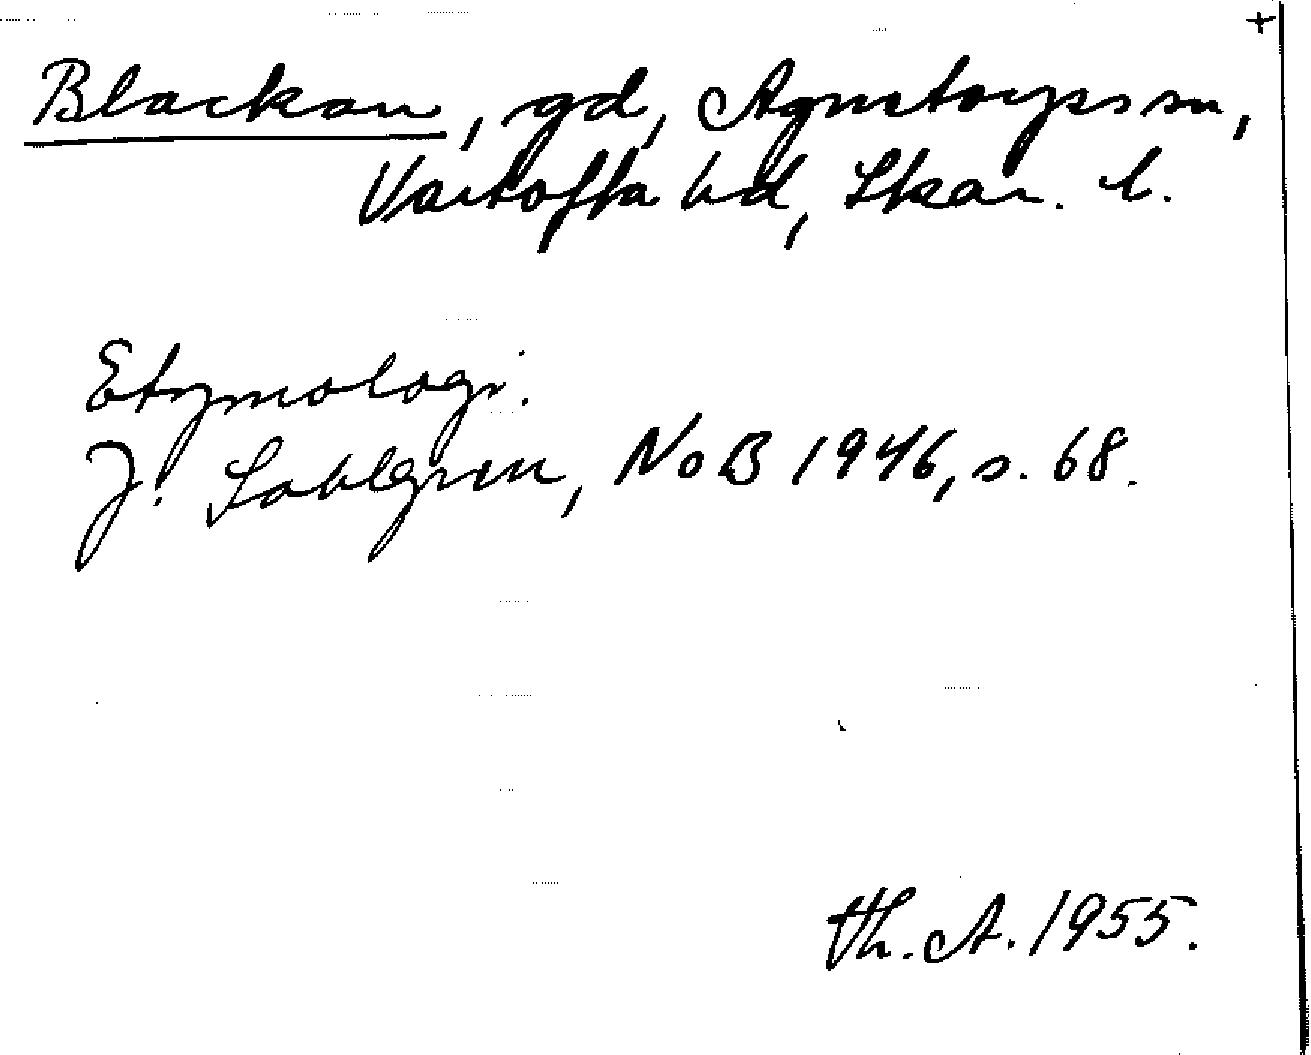 +
Blackan, gd, Agnetorps sn,
Vartofta hd, Skar. l.
Etymologi.
J. Sahlgren, NoB 1946, s. 68.
Th. A. 1955.